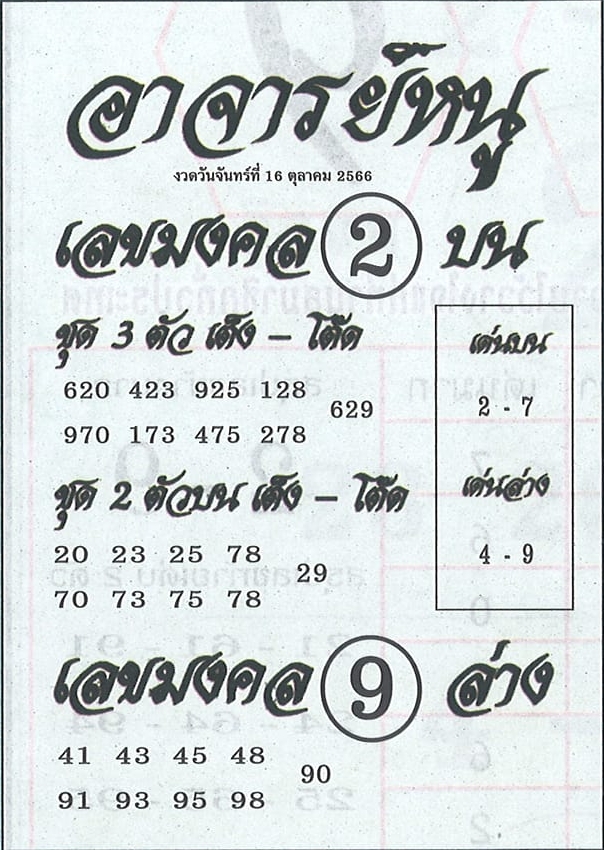 อาจารย์หนู
งวดวันจันทร์ที่ 16 ตุลาคม 2566
เลขมงคล 2 บน
ชุด 3 ตัว เต็ง - โต๊ด
620 423 925 128
629
970 173 475 278
ชุด 2 ตัวบน เต็ง - โต๊ด
20 23 25 78
29
70 73 75 78
เด่นบน
2 - 7
เด่นล่าง
4 - 9
เลขมงคล 9 ล่าง
41 43 45 48
90
91 93 95 98